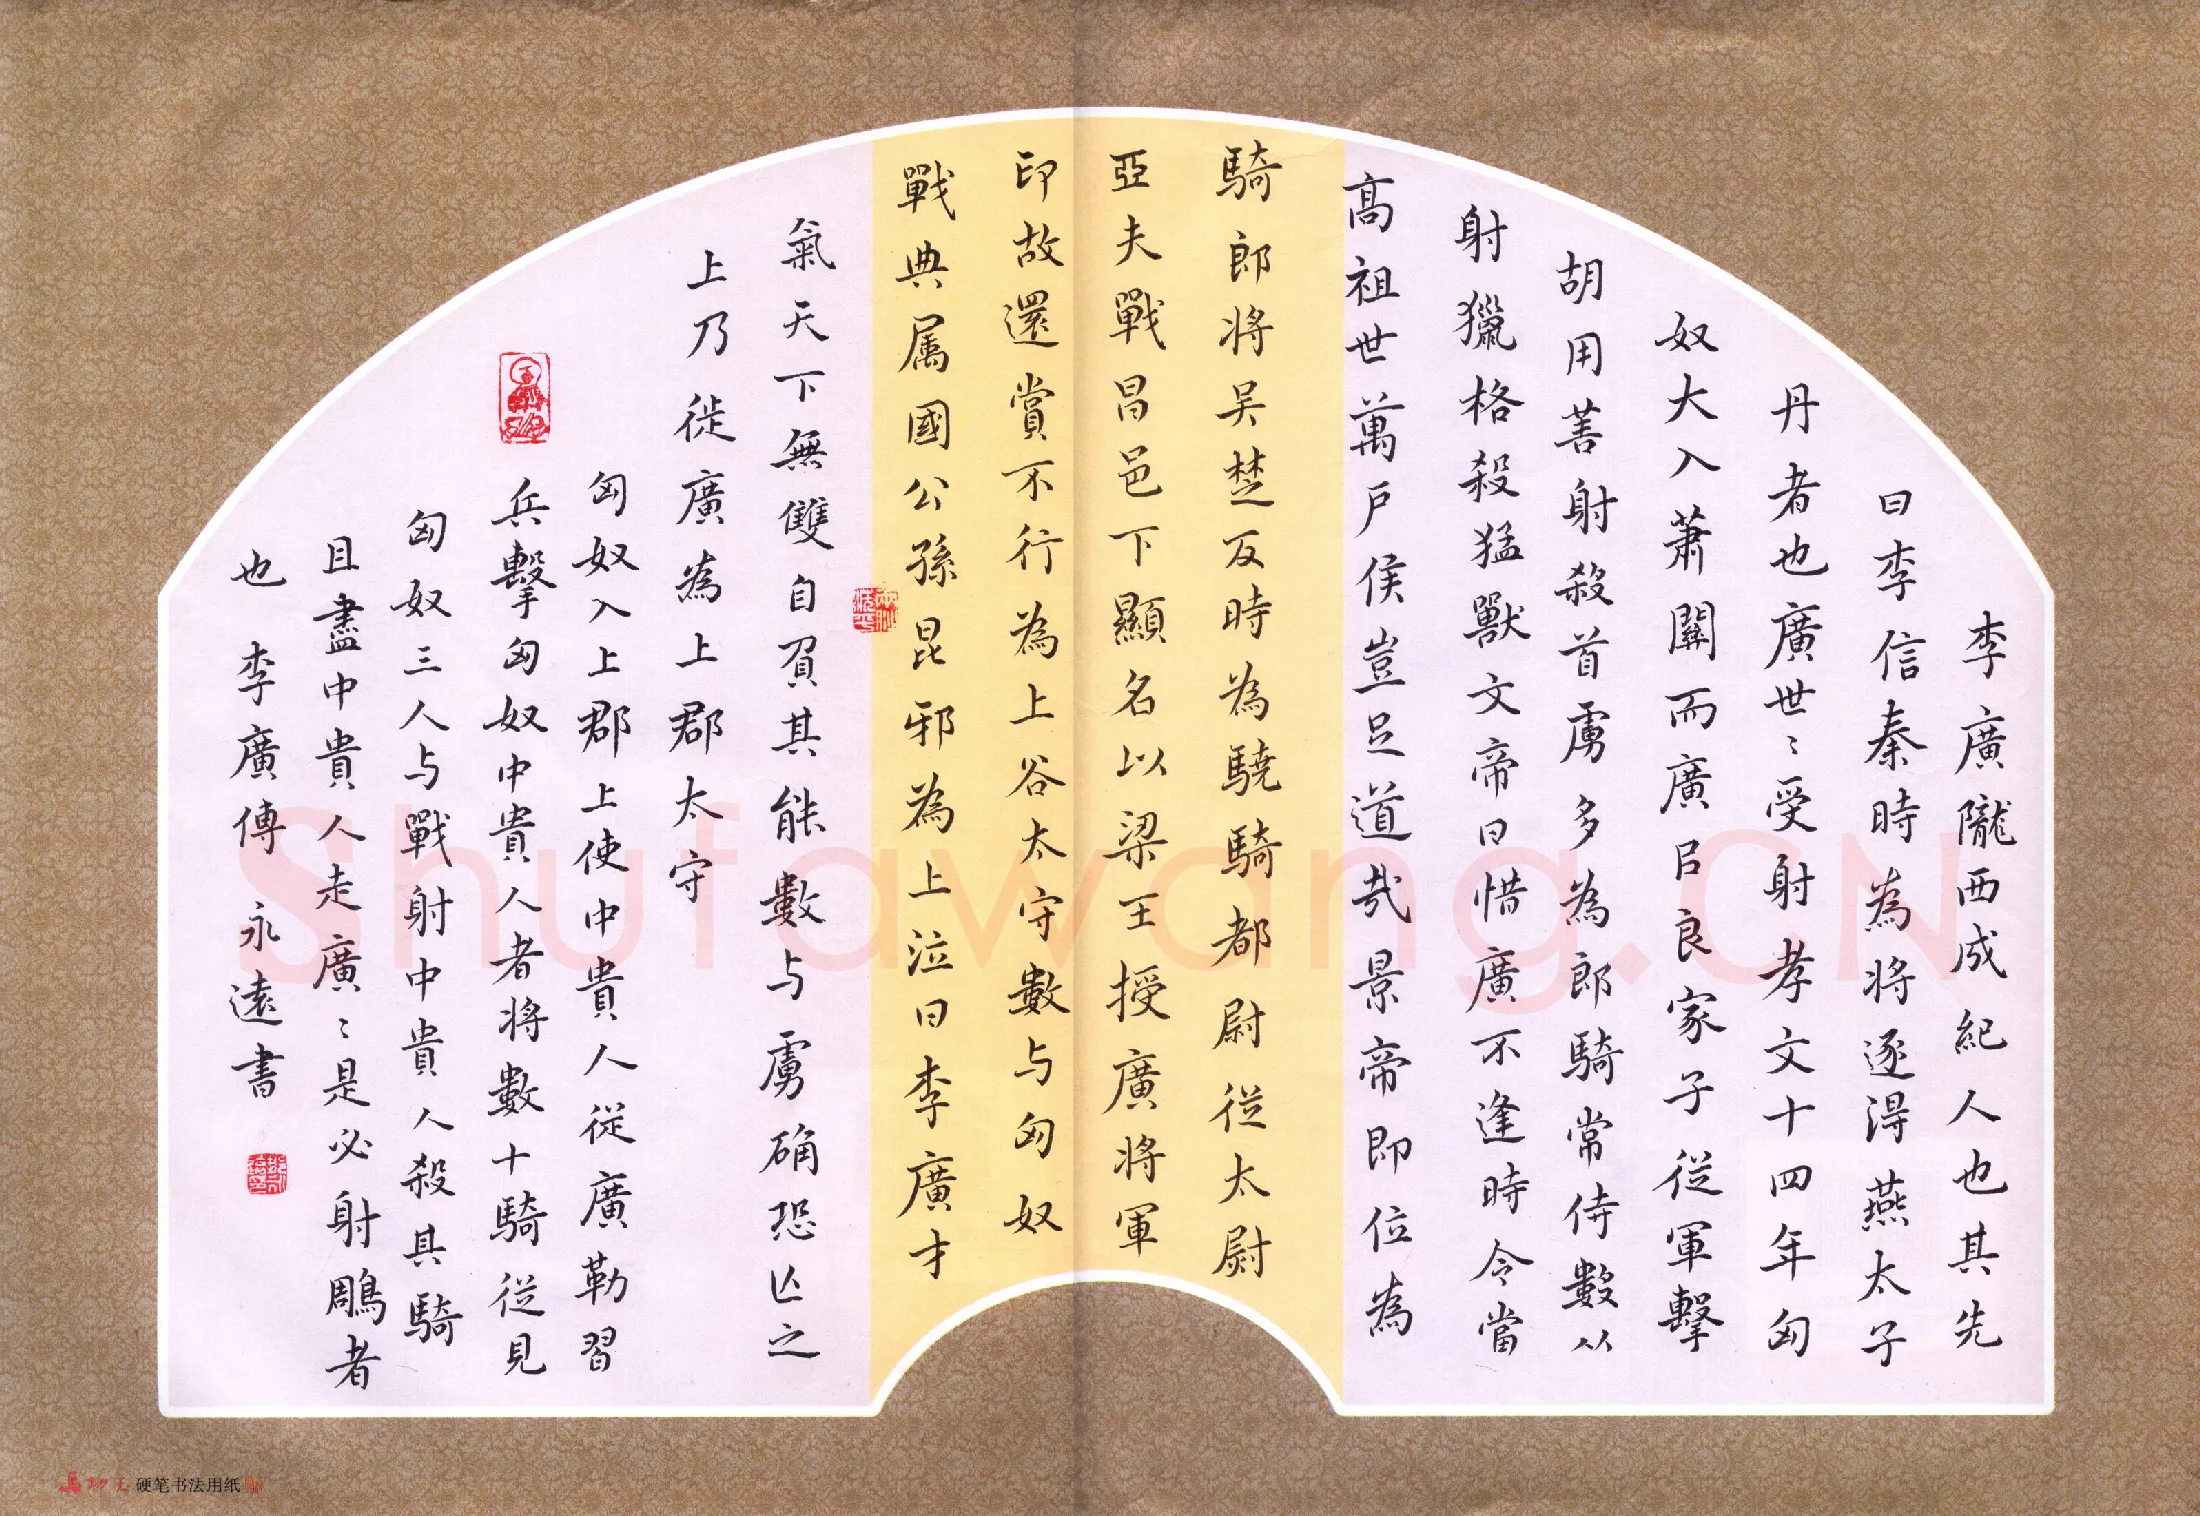 李廣隴西成紀人也其先
曰李信秦時為将逐淂燕太子
丹者也廣世〻受射孝文十四年匈
奴大入蕭關而廣㠯良家子從軍擊
胡用善射殺首虜多為郎騎常侍數从
射獵格殺猛獸文帝曰惜廣不逢時令當
高祖世萬戶侯豈足道哉景帝即位為
騎郎将吴楚反時為驍騎都尉從太尉
亞夫戰昌邑下顯名以梁王授廣将軍
印故還賞不行為上谷太守數与匈奴
戰典属國公孫昆邪為上泣曰李廣才
氣天下無雙自負其能數与虜确恐亾之
上乃徙廣為上郡太守
匈奴入上郡上使中貴人從廣勒習
兵擊匈奴中貴人者将數十騎從見
匈奴三人与戰射中貴人殺其騎
且盡中貴人走廣〻是必射鵰者
也 李廣傳 永遠書
Shufawang.CN
硬笔书法用纸